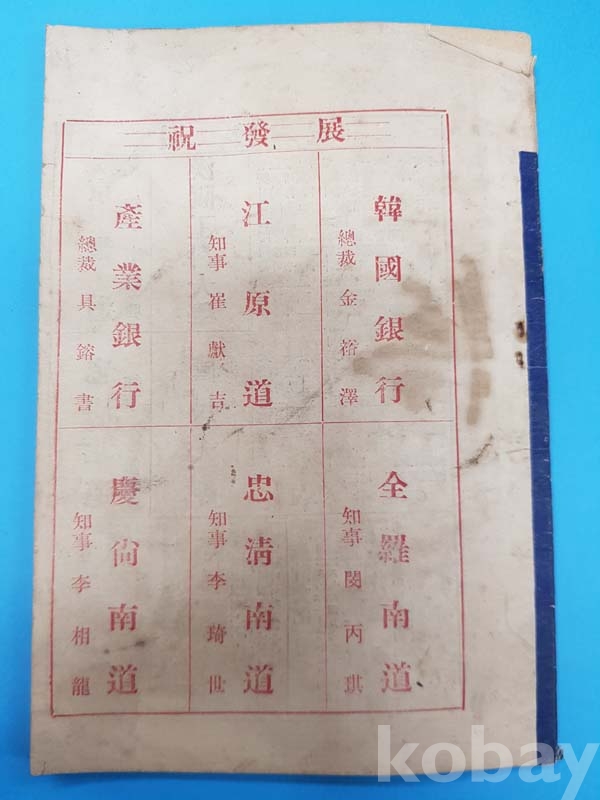 展發祝
韓國銀行
總裁 金裕澤
江原道
知事 崔獻吉
產業銀行
總裁 具鎔書
全羅南道
知事 閔丙琪
忠淸南道
知事 李琦世
慶尙南道
知事 李相龍
kobay